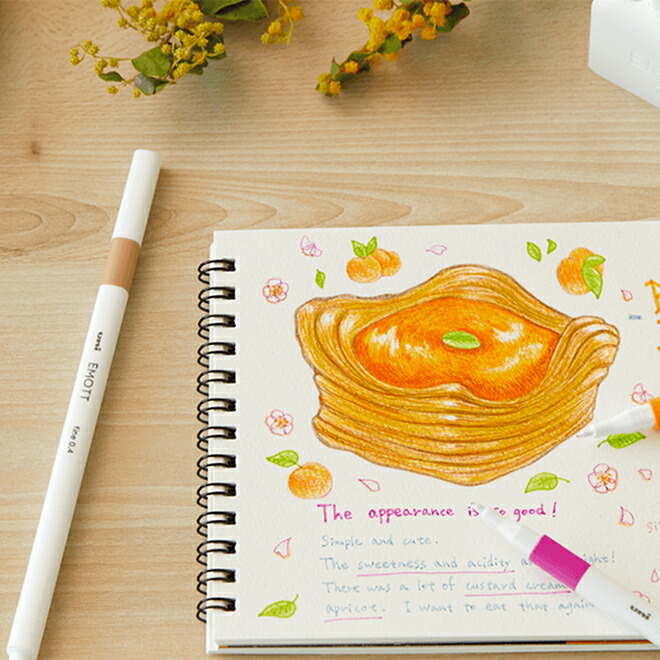 uni EMOTT fine 0.4
The appearance is so good!
Simple and cute.
The sweetness and acidity a ight!
There was a lot of custard cream
apricot. I want to eat that again
uni